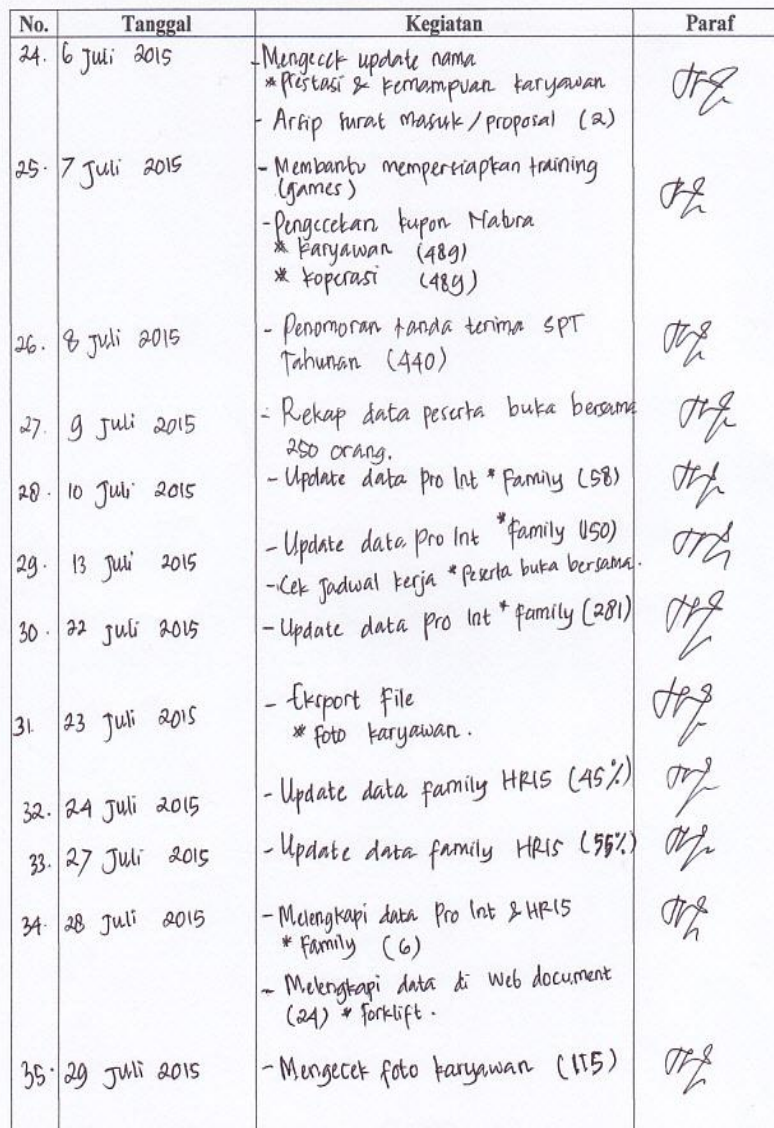 No. Tanggal Kegiatan Paraf
24. 6 Juli 2015 - Mengecek update nama
* Prestasi & kemampuan karyawan
- Arsip surat masuk / proposal (2)
25. 7 Juli 2015 - Membantu mempersiapkan training
(games)
- Pengecekan kupon Natura
* karyawan (489)
* koperasi (489)
26. 8 Juli 2015 - Penomoran tanda terima SPT
Tahunan (440)
27. 9 Juli 2015 - Rekap data peserta buka bersama
250 orang.
28. 10 Juli 2015 - Update data Pro Int * family (58)
29. 13 Juli 2015 - Update data Pro Int * family (150)
- Cek Jadwal kerja * Peserta buka bersama.
30. 22 Juli 2015 - Update data Pro Int * family (281)
31. 23 Juli 2015 - Eksport File
* foto karyawan.
32. 24 Juli 2015 - Update data family HRIS (45%)
33. 27 Juli 2015 - Update data family HRIS (55%)
34. 28 Juli 2015 - Melengkapi data Pro Int & HRIS
* family (6)
- Melengkapi data di Web document
(24) * forklift.
35. 29 Juli 2015 - Mengecek foto karyawan (115)